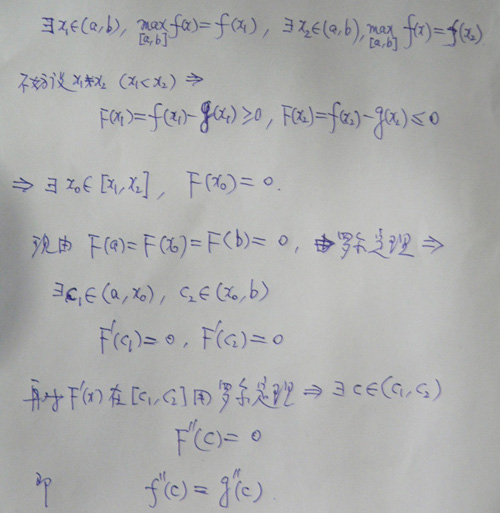 ∃x₁∈(a,b), max_[a,b] f(x)=f(x₁), ∃x₂∈(a,b), max_[a,b] f(x)=f(x₂)
不妨设 x₁≠x₂ (x₁<x₂) ⇒
F(x₁)=f(x₁)-g(x₁)≥0, F(x₂)=f(x₂)-g(x₂)≤0
⇒ ∃x₀∈[x₁,x₂], F(x₀)=0.
现由 F(a)=F(x₀)=F(b)=0, 罗尔定理 ⇒
∃c₁∈(a,x₀), c₂∈(x₀,b)
F'(c₁)=0, F'(c₂)=0
再对F'(x)在[c₁,c₂]用罗尔定理 ⇒ ∃c∈(c₁,c₂)
F''(c)=0
即 f''(c)=g''(c)